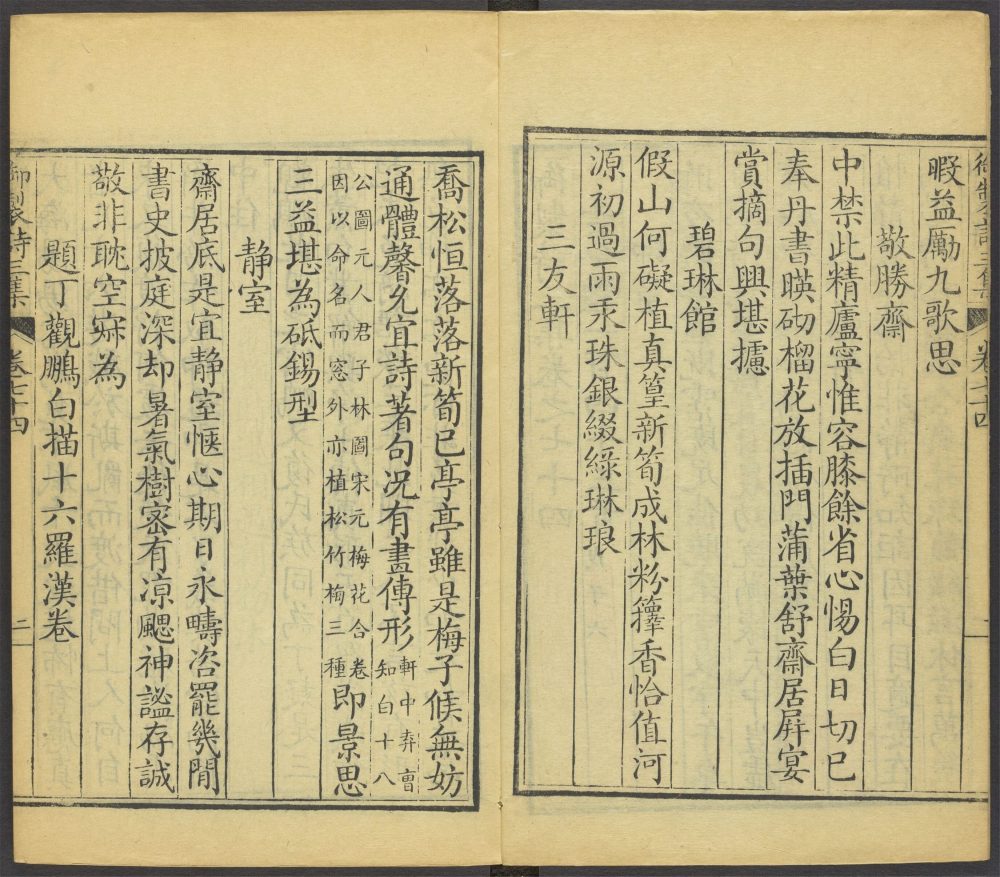 御製詩三集 卷七十四
暇益勵九歌思
敬勝齋
中禁此精廬寧惟容膝餘省心惕白日切己
奉丹書暎砌榴花放插門蒲葉舒齋居屛宴
賞摘句興堪攄
碧琳館
假山何礙植真篁新筍成林粉籜香恰值河
源初過雨汞珠銀綴綠琳琅
三友軒
喬松恒落落新筍已亭亭雖是梅子候無妨
通體馨允宜詩著句況有畫傳形軒中弆曹知白十八
公圖元人君子林圖宋元梅花合卷因以命名而窓外亦植松竹梅三種即景思
三益堪為砥錫型
靜室
齋居底是宜靜室愜心期日永疇咨罷幾閒
書史披庭深却暑氣樹密有凉颸神謐存誠
敬非耽空寂為
題丁觀鵬白描十六羅漢卷
御製詩三集 卷七十四 二